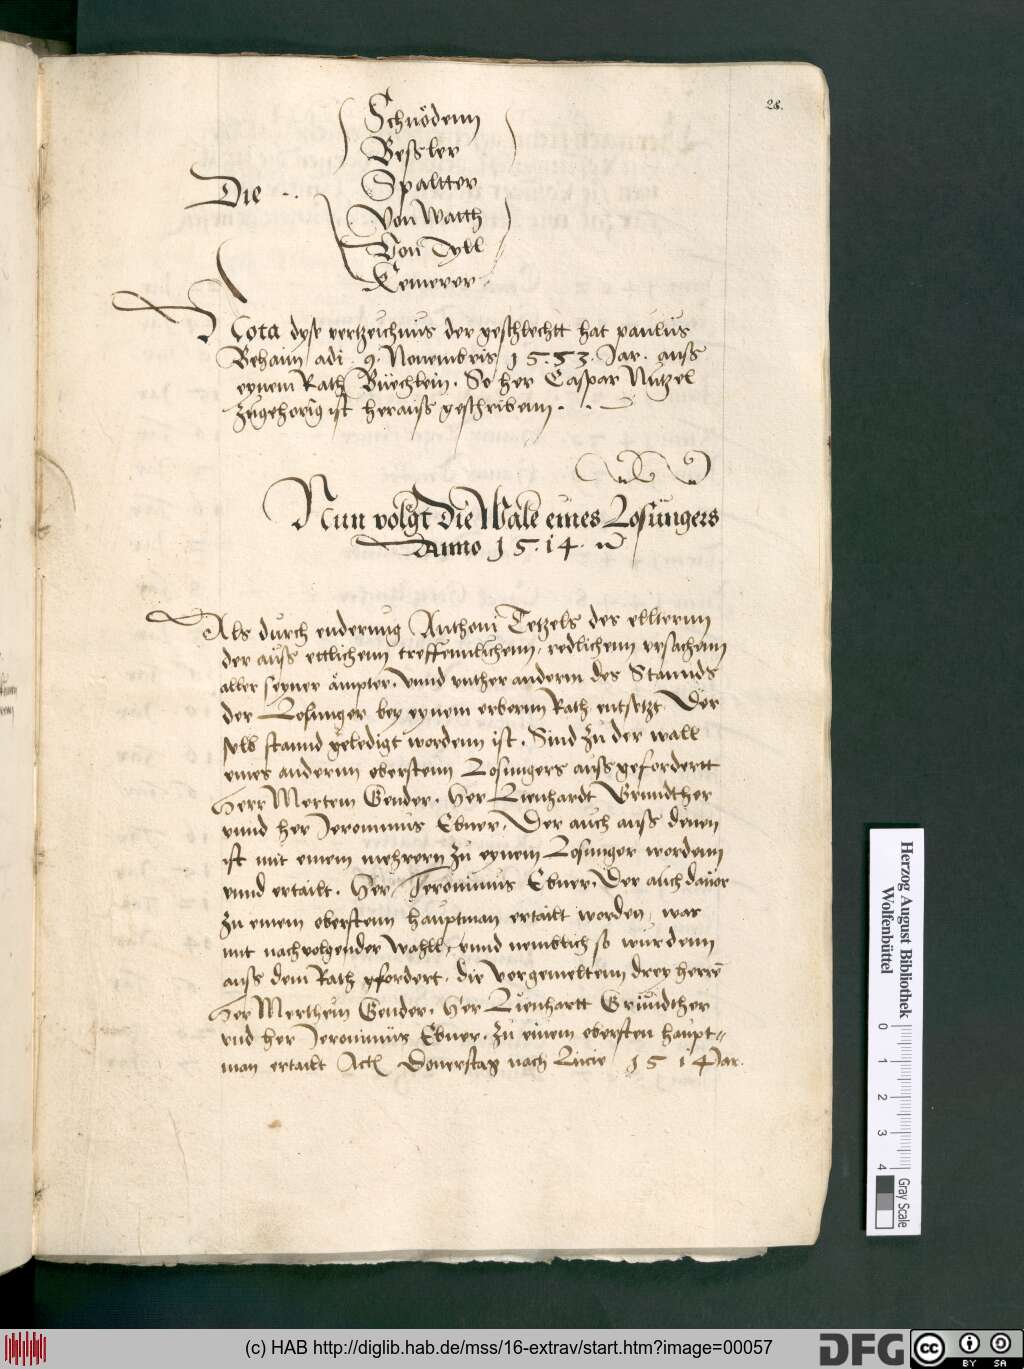 28.
Schnödenn
Bessler
Die .. Spaltter
Von Watth
Von Dyll
Kemerer
Nota dyse vertzeichnus der geschlechtt hat paulus
Behaim adi . 9. Nouembris 1553. Jar. auss
eynem Rath Büechlein. So her Caspar Nützel
zugehorig ist herauss geschribenn.
Nun volgt Die Wale eines Losungers
Anno 1514.
Als durch enderung Anthoni Tetzels des ellternn
der auss ettlichenn treffennlichenn, redlichenn vrsachenn
aller seyner ämpter, vnnd vnther anderm des Stannds
der Losunger bey eynem erbernn Rath entsetzt. Der
selb stannd geledigt wordenn ist. Sind zu der wall
eines andernn oberstenn Losungers aussgefordertt
Herr Mertein Geuder. Her Lienhardt Grundther
vnnd her Jeronimus Ebner. Der auch auss denen
ist mit einem mehrern zu eynem Losunger wordenn
vnnd ertailt. Her Jeronimus Ebner. Der auch dauor
zu einem oberstenn hauptman ertailt worden, war
mit nachvolgender wahll, vnnd nemblich so wurdenn
auss dem Rath gfordert. die vorgemeltenn drey herrē
Her Merthein Geuder. Her Lienhartt Grundther
vnd her Jeronimus Ebner. zu einem obersten haupt-
man ertailt Act Donerstag nach Lucie 1514 Jar.
Herzog August Bibliothek
Wolfenbüttel
0 1 2 3 4
Gray Scale
(c) HAB http://diglib.hab.de/mss/16-extrav/start.htm?image=00057
DFG
cc BY SA